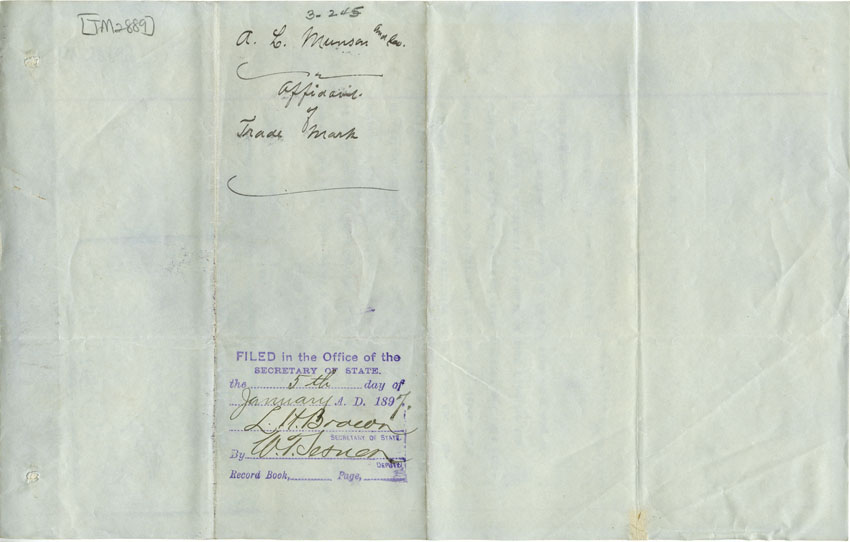 [TM2889]
3-245
A. L. Munson and Co.
Affidavit
of
Trade Mark
FILED in the Office of the
SECRETARY OF STATE.
the 5th day of
January A. D. 1897.
L. H. Brown
SECRETARY OF STATE.
By W. T.
DEPUTY
Record Book, Page,